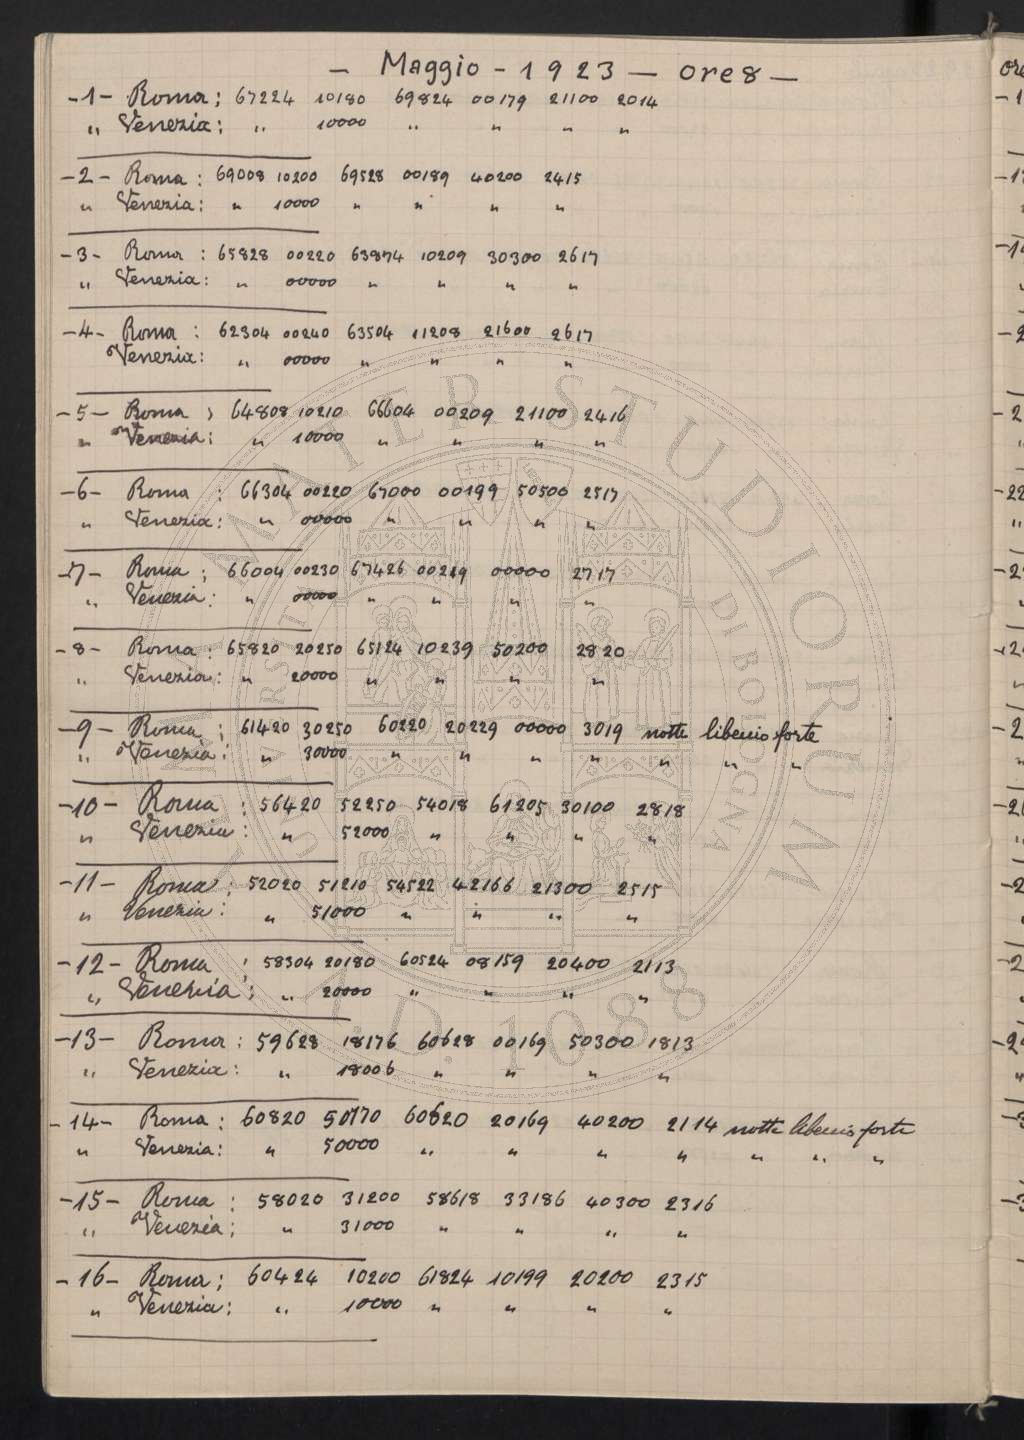 — Maggio - 1923 — ore 8 —
-1- Roma ; 67224 10180 69824 00179 21100 2014
" Venezia : " 10000 " " " "
-2- Roma : 69008 10200 69528 00189 40200 2415
" Venezia : " 10000 " " " "
-3- Roma : 65828 00220 63874 10209 30300 2617
" Venezia : " 00000 " " " "
-4- Roma : 62304 00240 63504 11208 21600 2617
Venezia : " 00000 " " " "
-5- Roma ; 64808 10210 66604 00209 21100 2416
" Venezia : " 10000 " " " "
-6- Roma : 66304 00220 67000 00199 50500 2517
" Venezia : " 00000 " " " "
-7- Roma ; 66004 00230 67426 00219 00000 2717
" Venezia : " 00000 " " " "
-8- Roma : 65820 20250 65124 10239 50200 2820
" Venezia : " 20000 " " " "
-9- Roma ; 61420 30250 60220 20229 00000 3019 notte libeccio forte
" Venezia : " 30000 " " " " " " "
-10- Roma : 56420 52250 54018 61205 30100 2818
" Venezia : " 52000 " " " "
-11- Roma : 52020 51210 54522 42166 21300 2515
" Venezia : " 51000 " " " "
-12- Roma : 58304 20180 60524 08159 20400 2113
" Venezia ; " 20000 " " " "
-13- Roma : 59628 18176 60628 00169 50300 1813
" Venezia : " 18006 " " " "
-14- Roma ; 60820 50170 60620 20169 40200 2114 notte libeccio forte
" Venezia : " 50000 " " " " " " "
-15- Roma : 58020 31200 58618 33186 40300 2316
" Venezia ; " 31000 " " " "
-16- Roma ; 60424 10200 61824 10199 20200 2315
" Venezia : " 10000 " " " "
ALMA MATER STUDIORUM
UNIVERSITÀ DI BOLOGNA
A.D. 1088